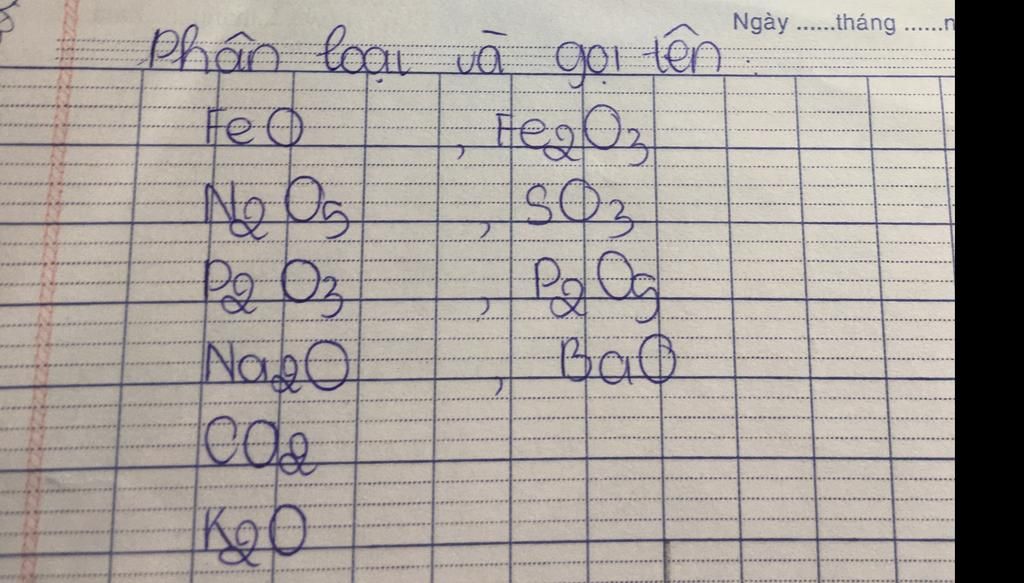 Ngày ......tháng ......n
Phân loại và gọi tên.
FeO , Fe2O3
N2O5 , SO3
P2O3 , P2O5
Na2O , BaO
CO2
K2O